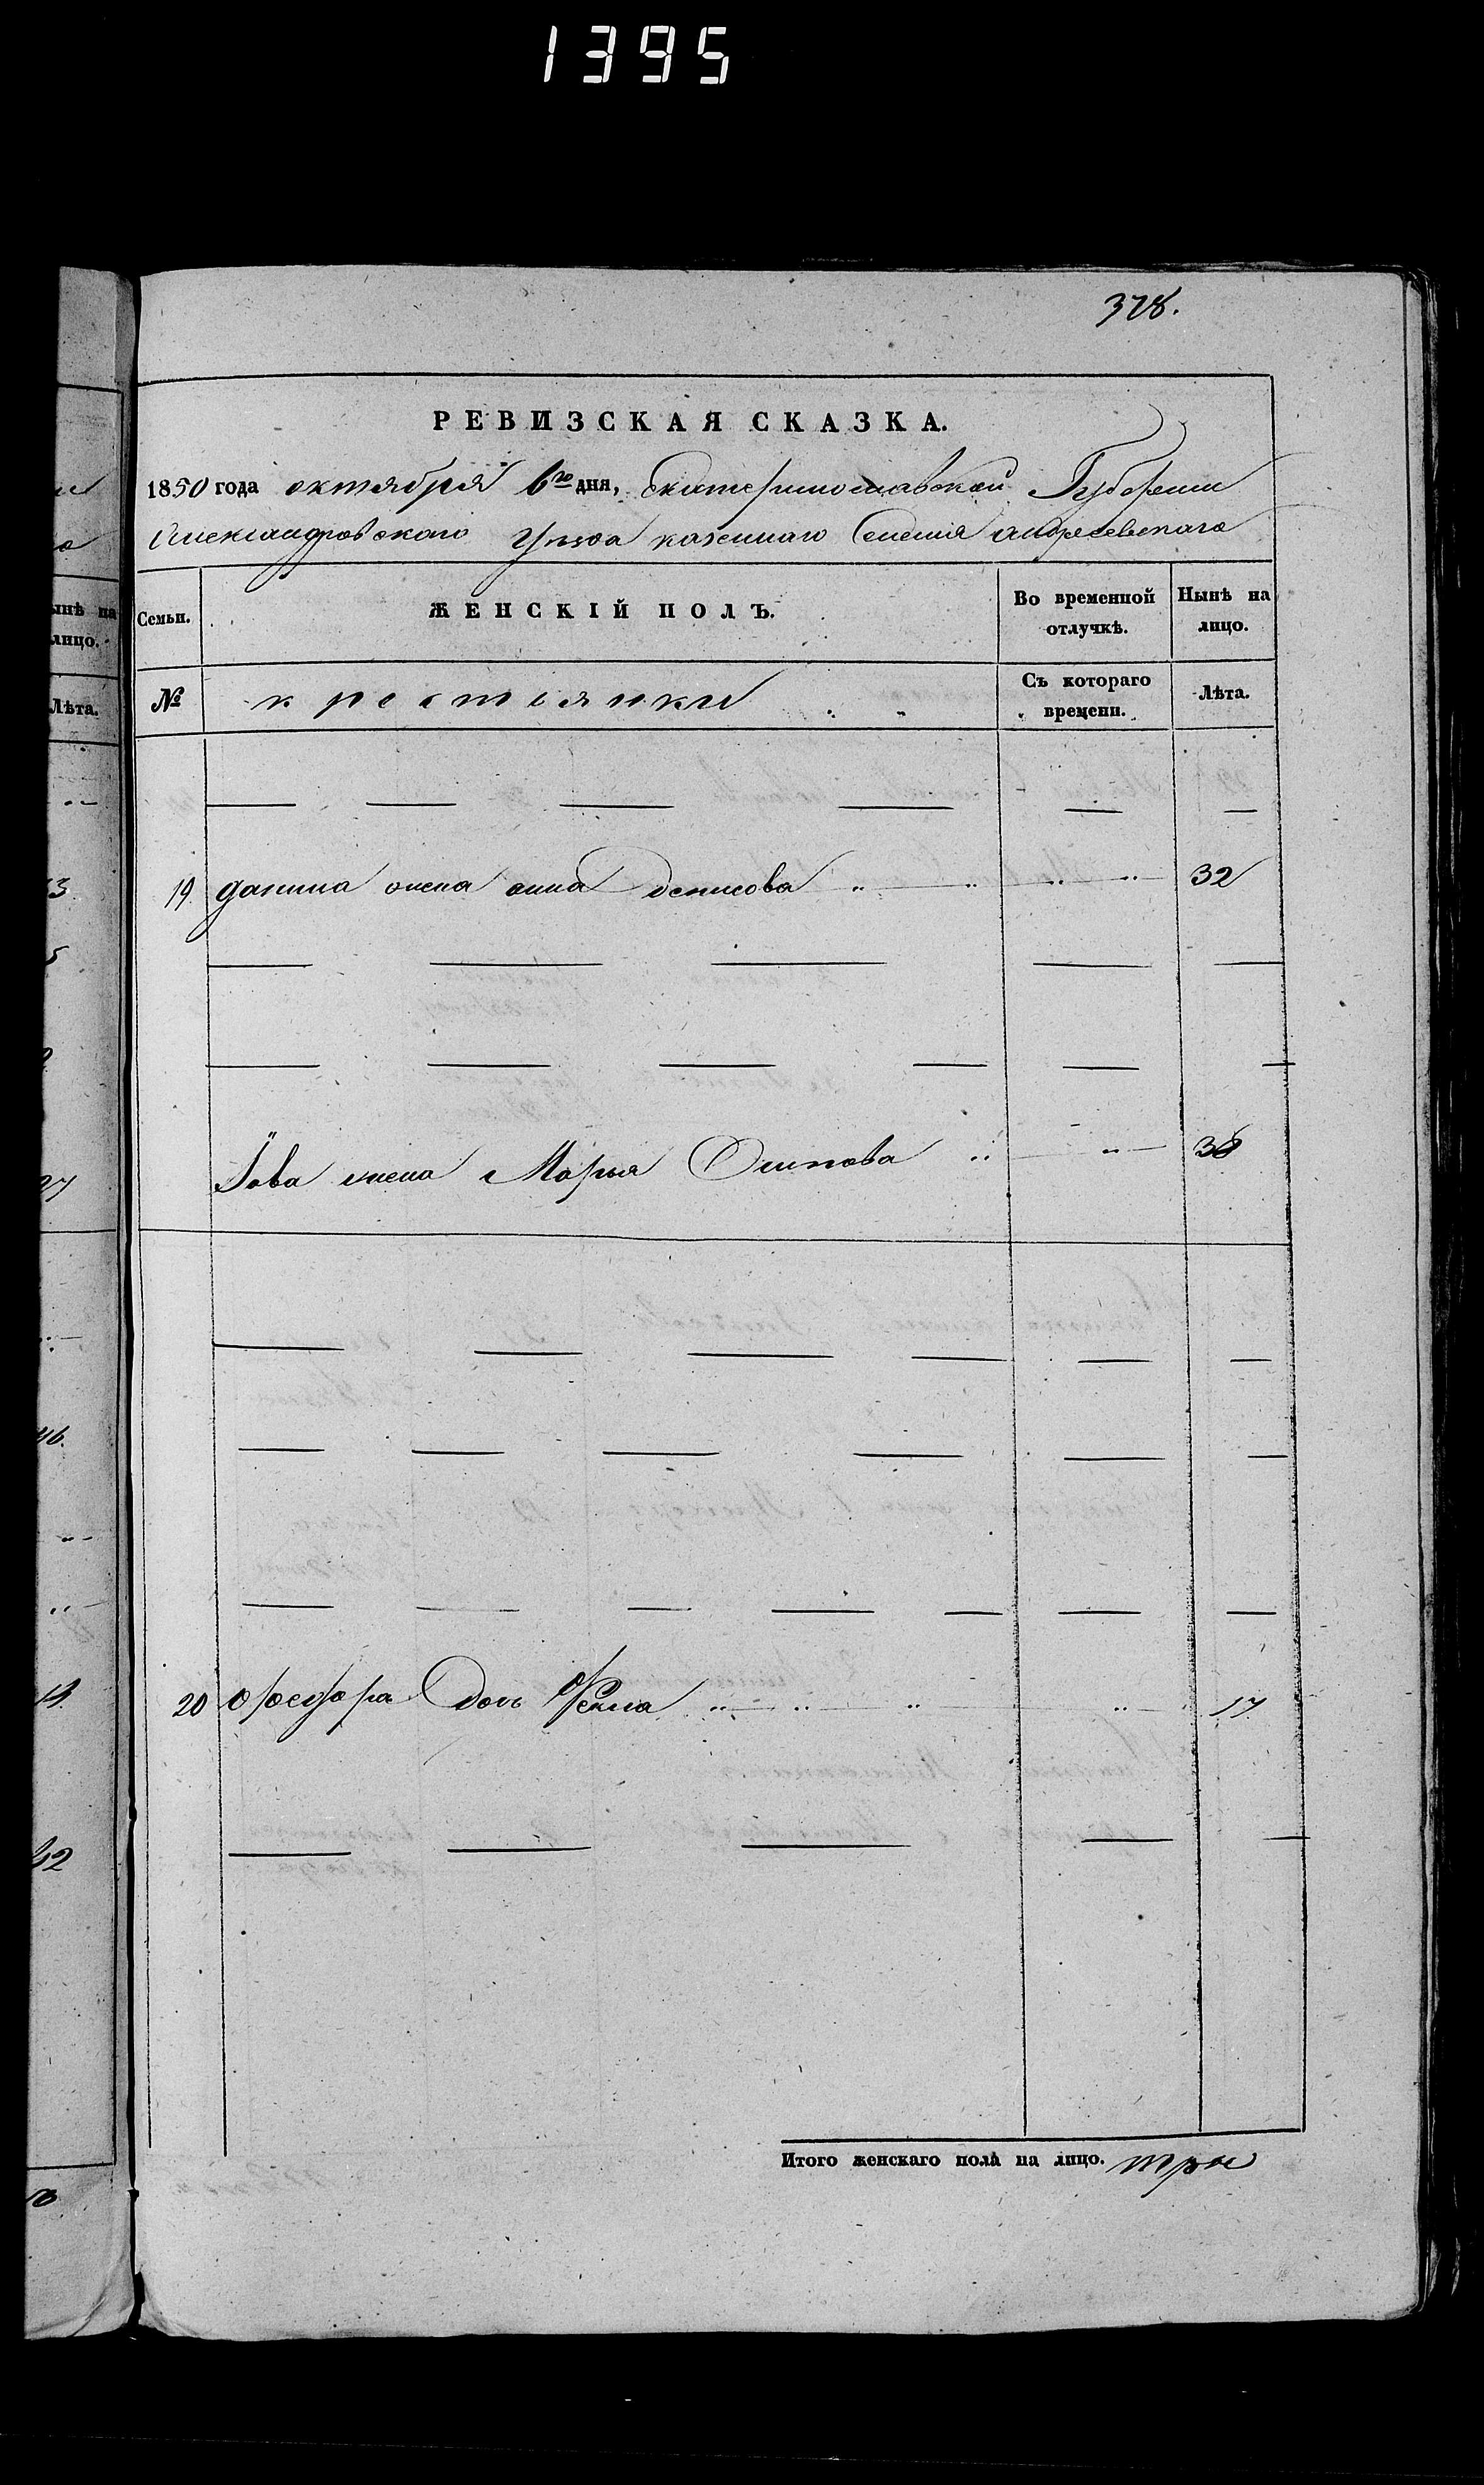 1395
378.
РЕВИЗСКАЯ СКАЗКА.
1850 года октября 6го дня, Екатеринославской Губернии
Александровскаго Уѣзда казеннаго Селенія андреевскаго
Семьи. ЖЕНСКІЙ ПОЛЪ. Во временной отлучкѣ. Нынѣ на лицо.
№ крестьянки Съ котораго времени. Лѣта.
19. данила жена анна Денисова 32
Іова жена Марья Осипова 38
20 Федора Дочь Фекла 17
Итого женскаго пола на лицо. три
ынѣ на
лицо.
Лѣта.